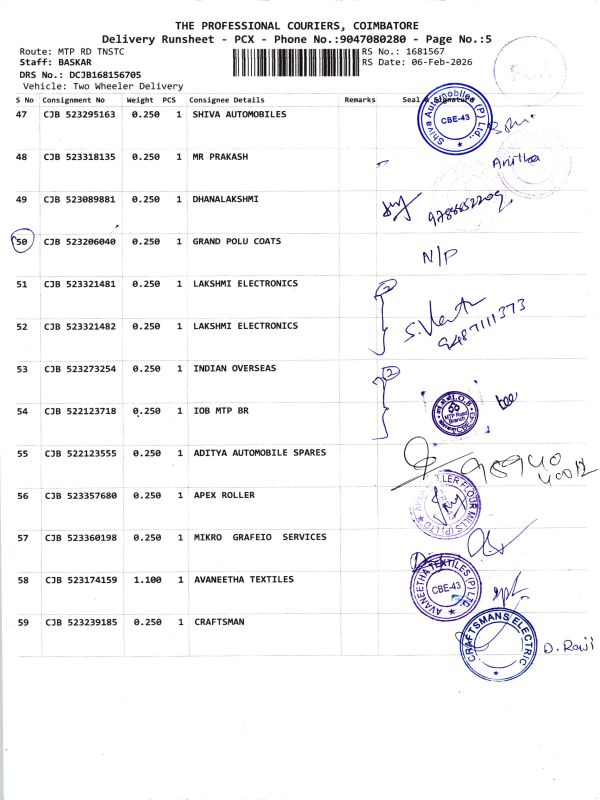 THE PROFESSIONAL COURIERS, COIMBATORE
Delivery Runsheet - PCX - Phone No.:9047080280 - Page No.:5
Route: MTP RD TNSTC
RS No.: 1681567
Staff: BASKAR
RS Date: 06-Feb-2026
DRS No.: DCJB168156705
Vehicle: Two Wheeler Delivery
S No Consignment No Weight PCS Consignee Details Remarks Seal & Signature
47 CJB 523295163 0.250 1 SHIVA AUTOMOBILES
Shiva Automobiles (P) Ltd., CBE-43
48 CJB 523318135 0.250 1 MR PRAKASH
49 CJB 523089881 0.250 1 DHANALAKSHMI
50 CJB 523206040 0.250 1 GRAND POLU COATS
N/P
51 CJB 523321481 0.250 1 LAKSHMI ELECTRONICS
2
52 CJB 523321482 0.250 1 LAKSHMI ELECTRONICS
9487111373
53 CJB 523273254 0.250 1 INDIAN OVERSEAS
2
54 CJB 522123718 0.250 1 IOB MTP BR
I.O.B. MTP Road Branch
55 CJB 522123555 0.250 1 ADITYA AUTOMOBILE SPARES
56 CJB 523357680 0.250 1 APEX ROLLER
ROLLER FLOUR MILLS (P) LTD
57 CJB 523360198 0.250 1 MIKRO GRAFEIO SERVICES
58 CJB 523174159 1.100 1 AVANEETHA TEXTILES
AVANEETHA TEXTILES (P) LTD. CBE-43
59 CJB 523239185 0.250 1 CRAFTSMAN
CRAFTSMANS ELECTRIC
D. Ravi